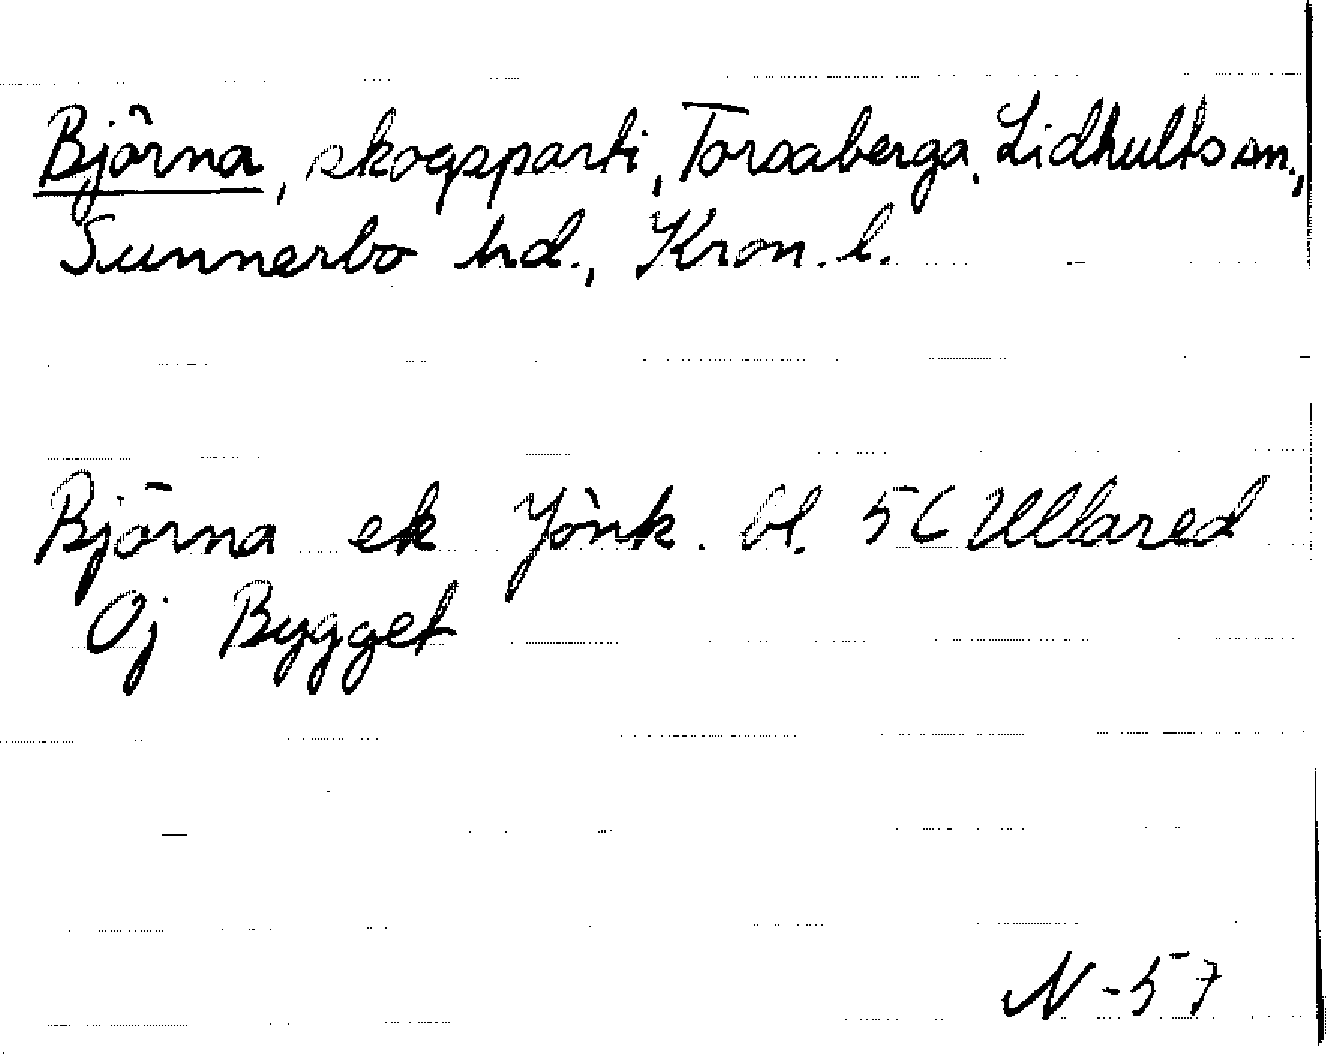 Björna, skogsparti, Torsaberga, Lidhults sn.,
Sunnerbo hd., Kron. l.
Björna ek Jönk. bl. 5C Ullared
Oj Bygget
N-57